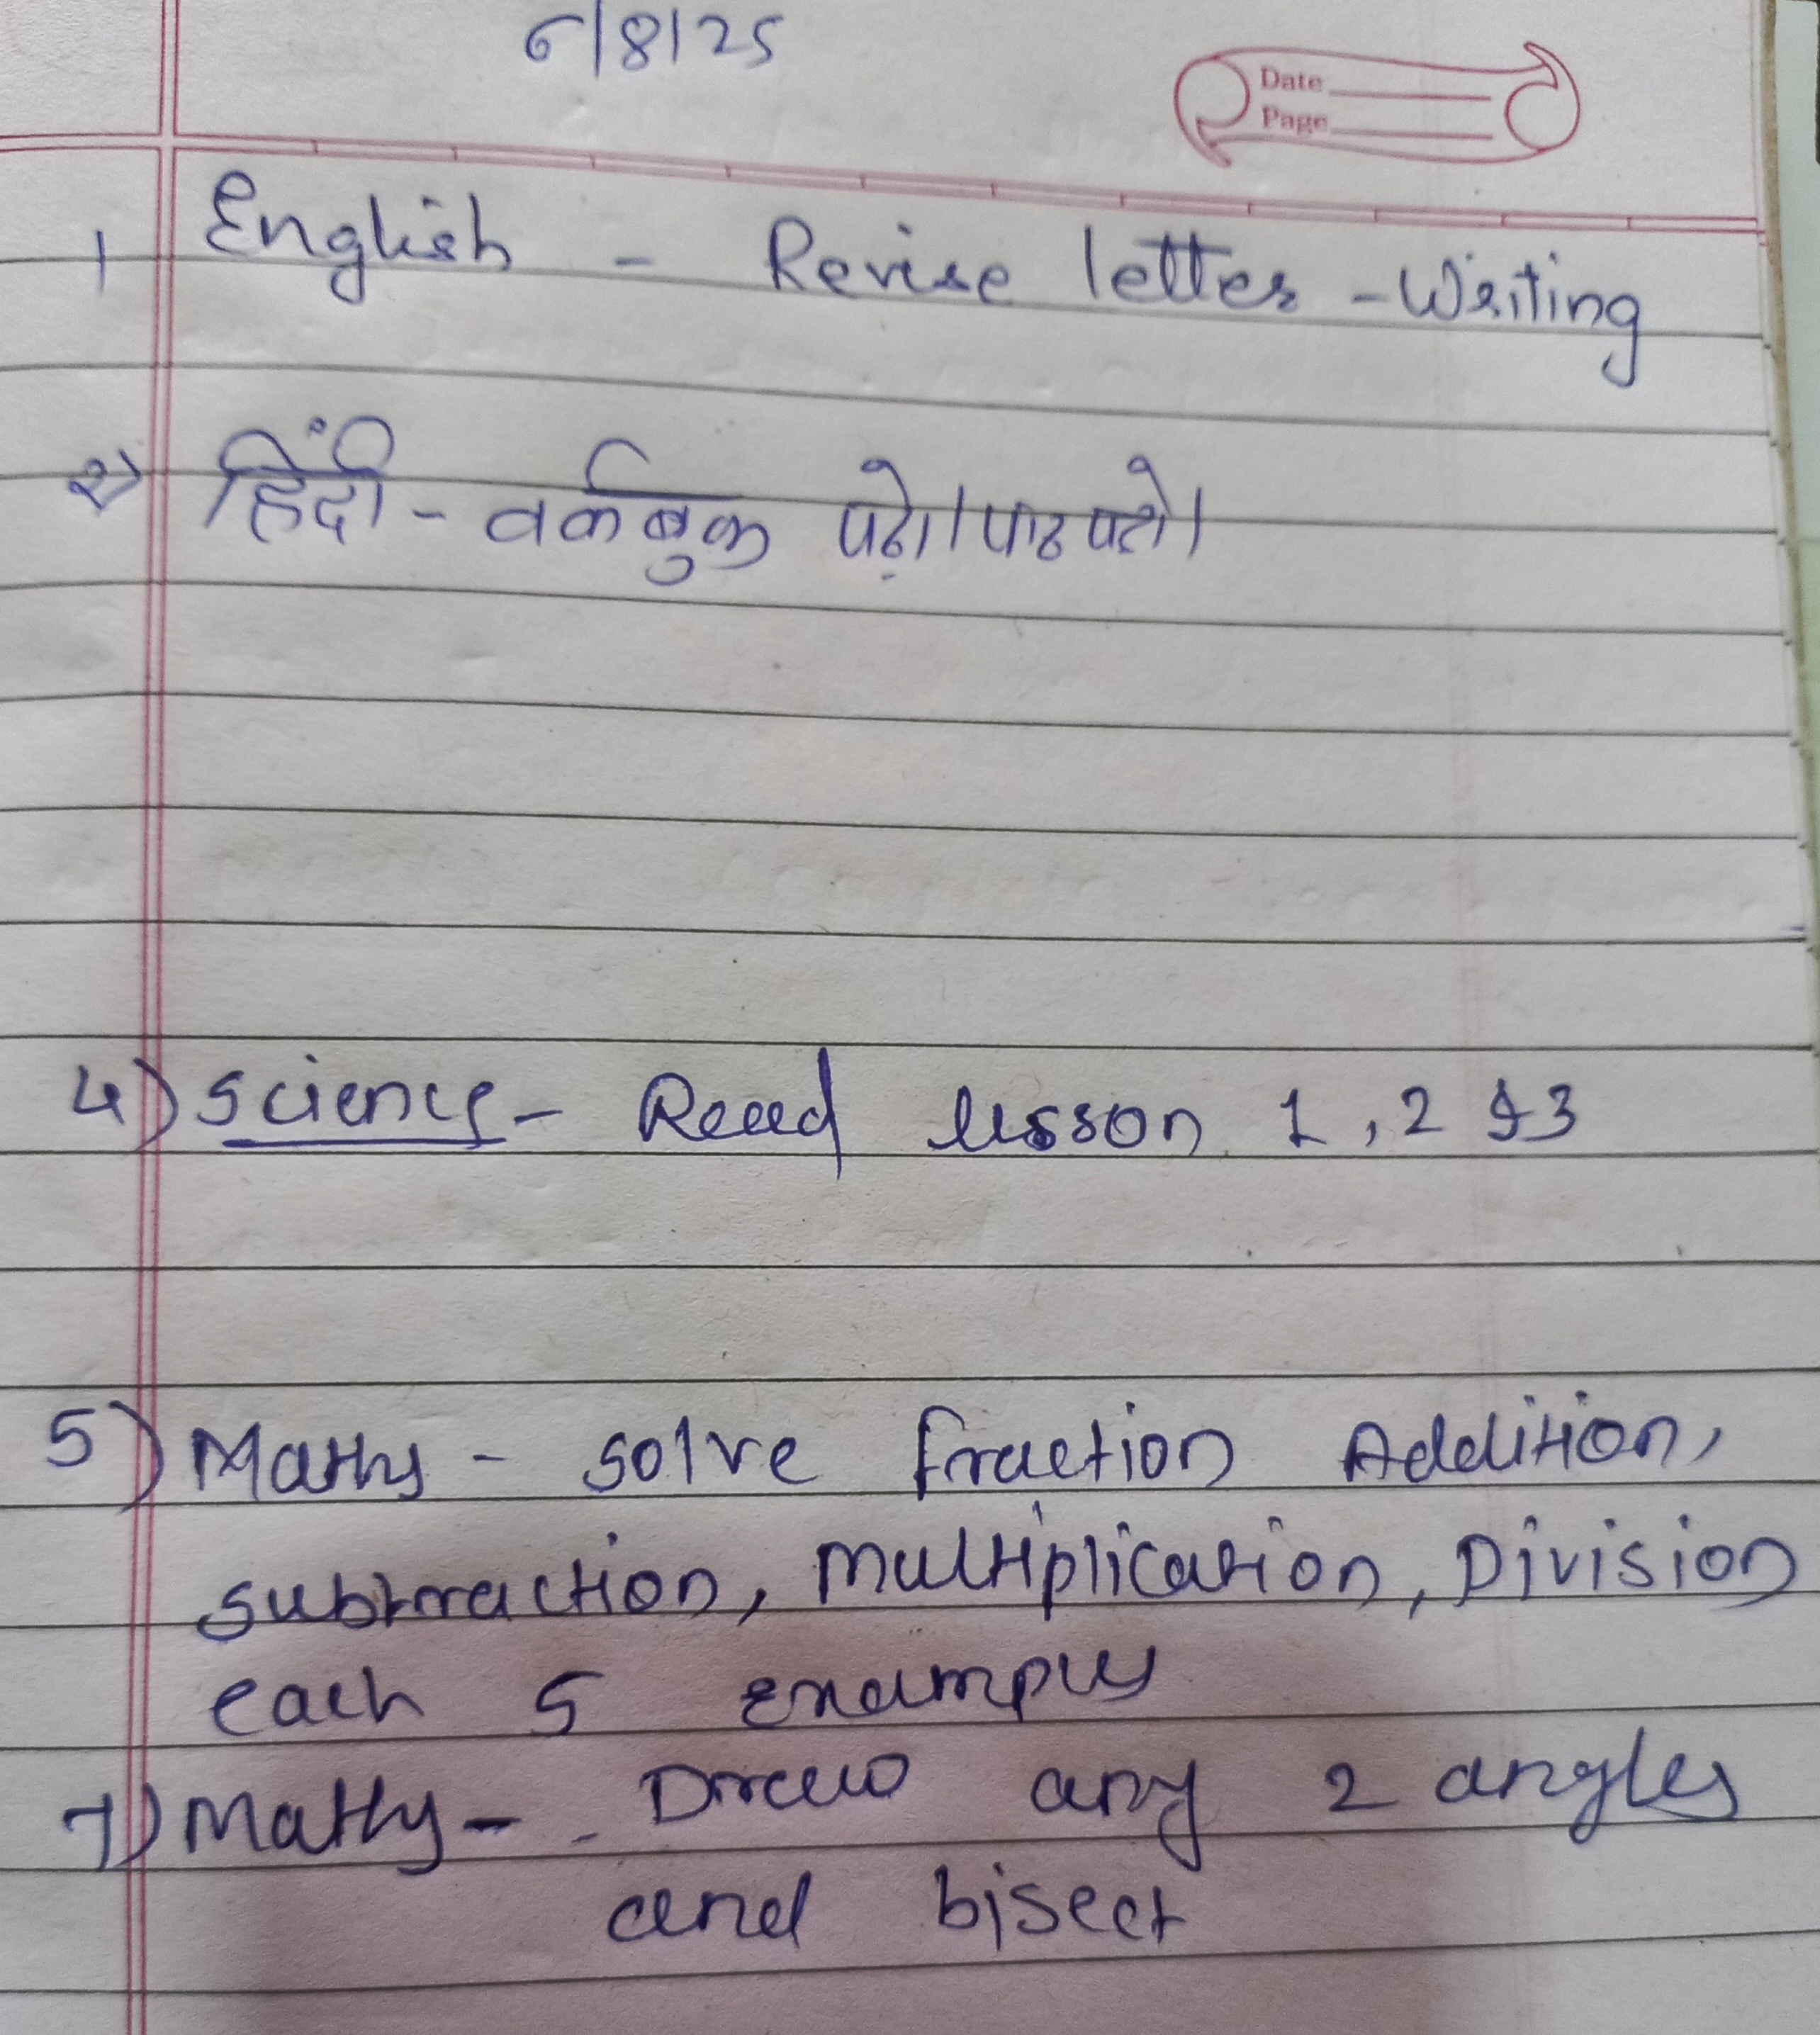 6/8/25
Date
Page
1 English - Revise letter - Writing
२) हिंदी - वर्कबुक पढ़ो। पाठ पढो।
4) Science - Read lesson 1, 2 & 3
5) Maths - solve fraction Addition,
subtraction, Multiplication, Division
each 5 examples
7) Maths - - Draw any 2 angles
and bisect